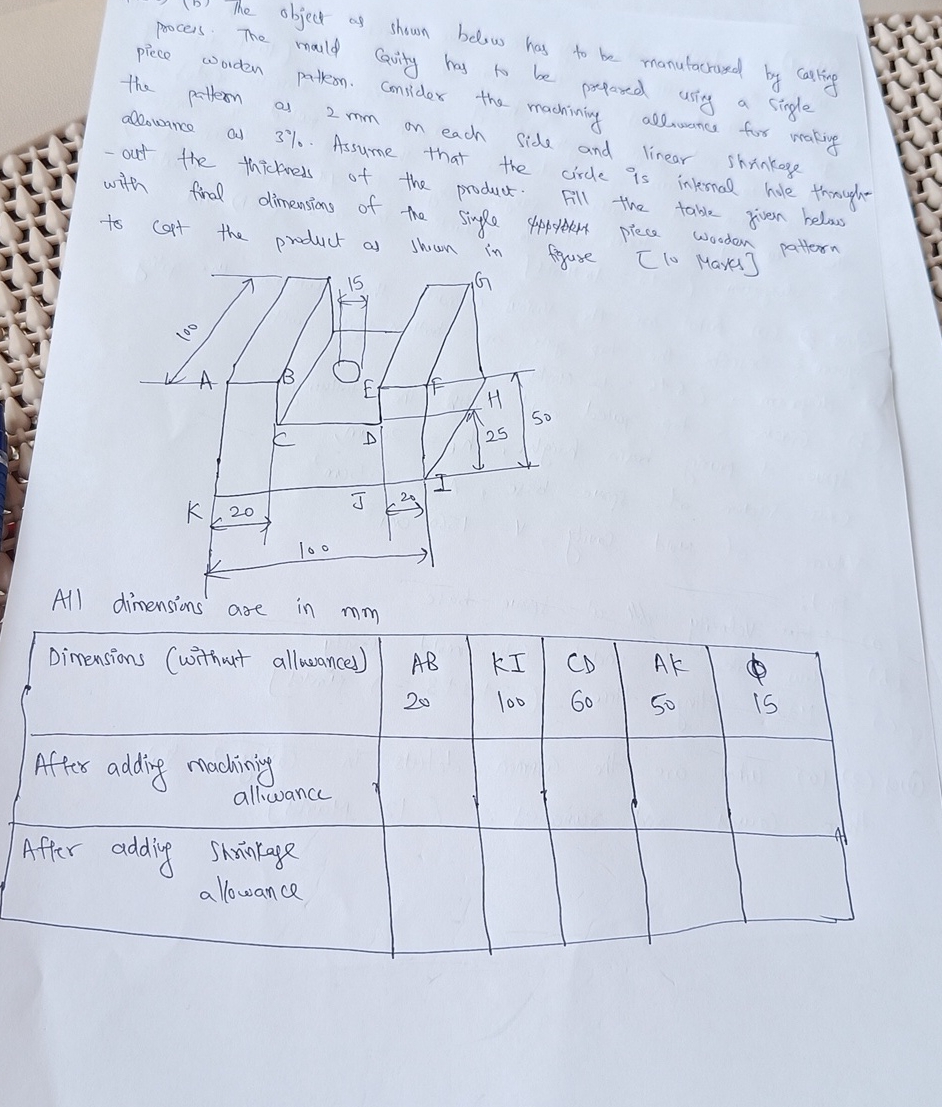 (b) The object as shown below has to be manufactured by casting
process. The mould Cavity has to be prepared using a single
piece wooden pattern. Consider the machining allowance for making
the pattern as 2 mm on each side and linear shrinkage
allowance as 3%. Assume that the circle is internal hole through-
-out the thickness of the product. Fill the table given below
with final dimensions of the single piece wooden pattern
to cast the product as shown in figure [10 Marks]
15
G
100
A
B
E
F
H
50
C
D
25
I
K
20
J
20
100
All dimensions are in mm
Dimensions (without allowances) AB KI CD AK Φ
20 100 60 50 15
After adding machining
allowance
After adding Shrinkage
allowance